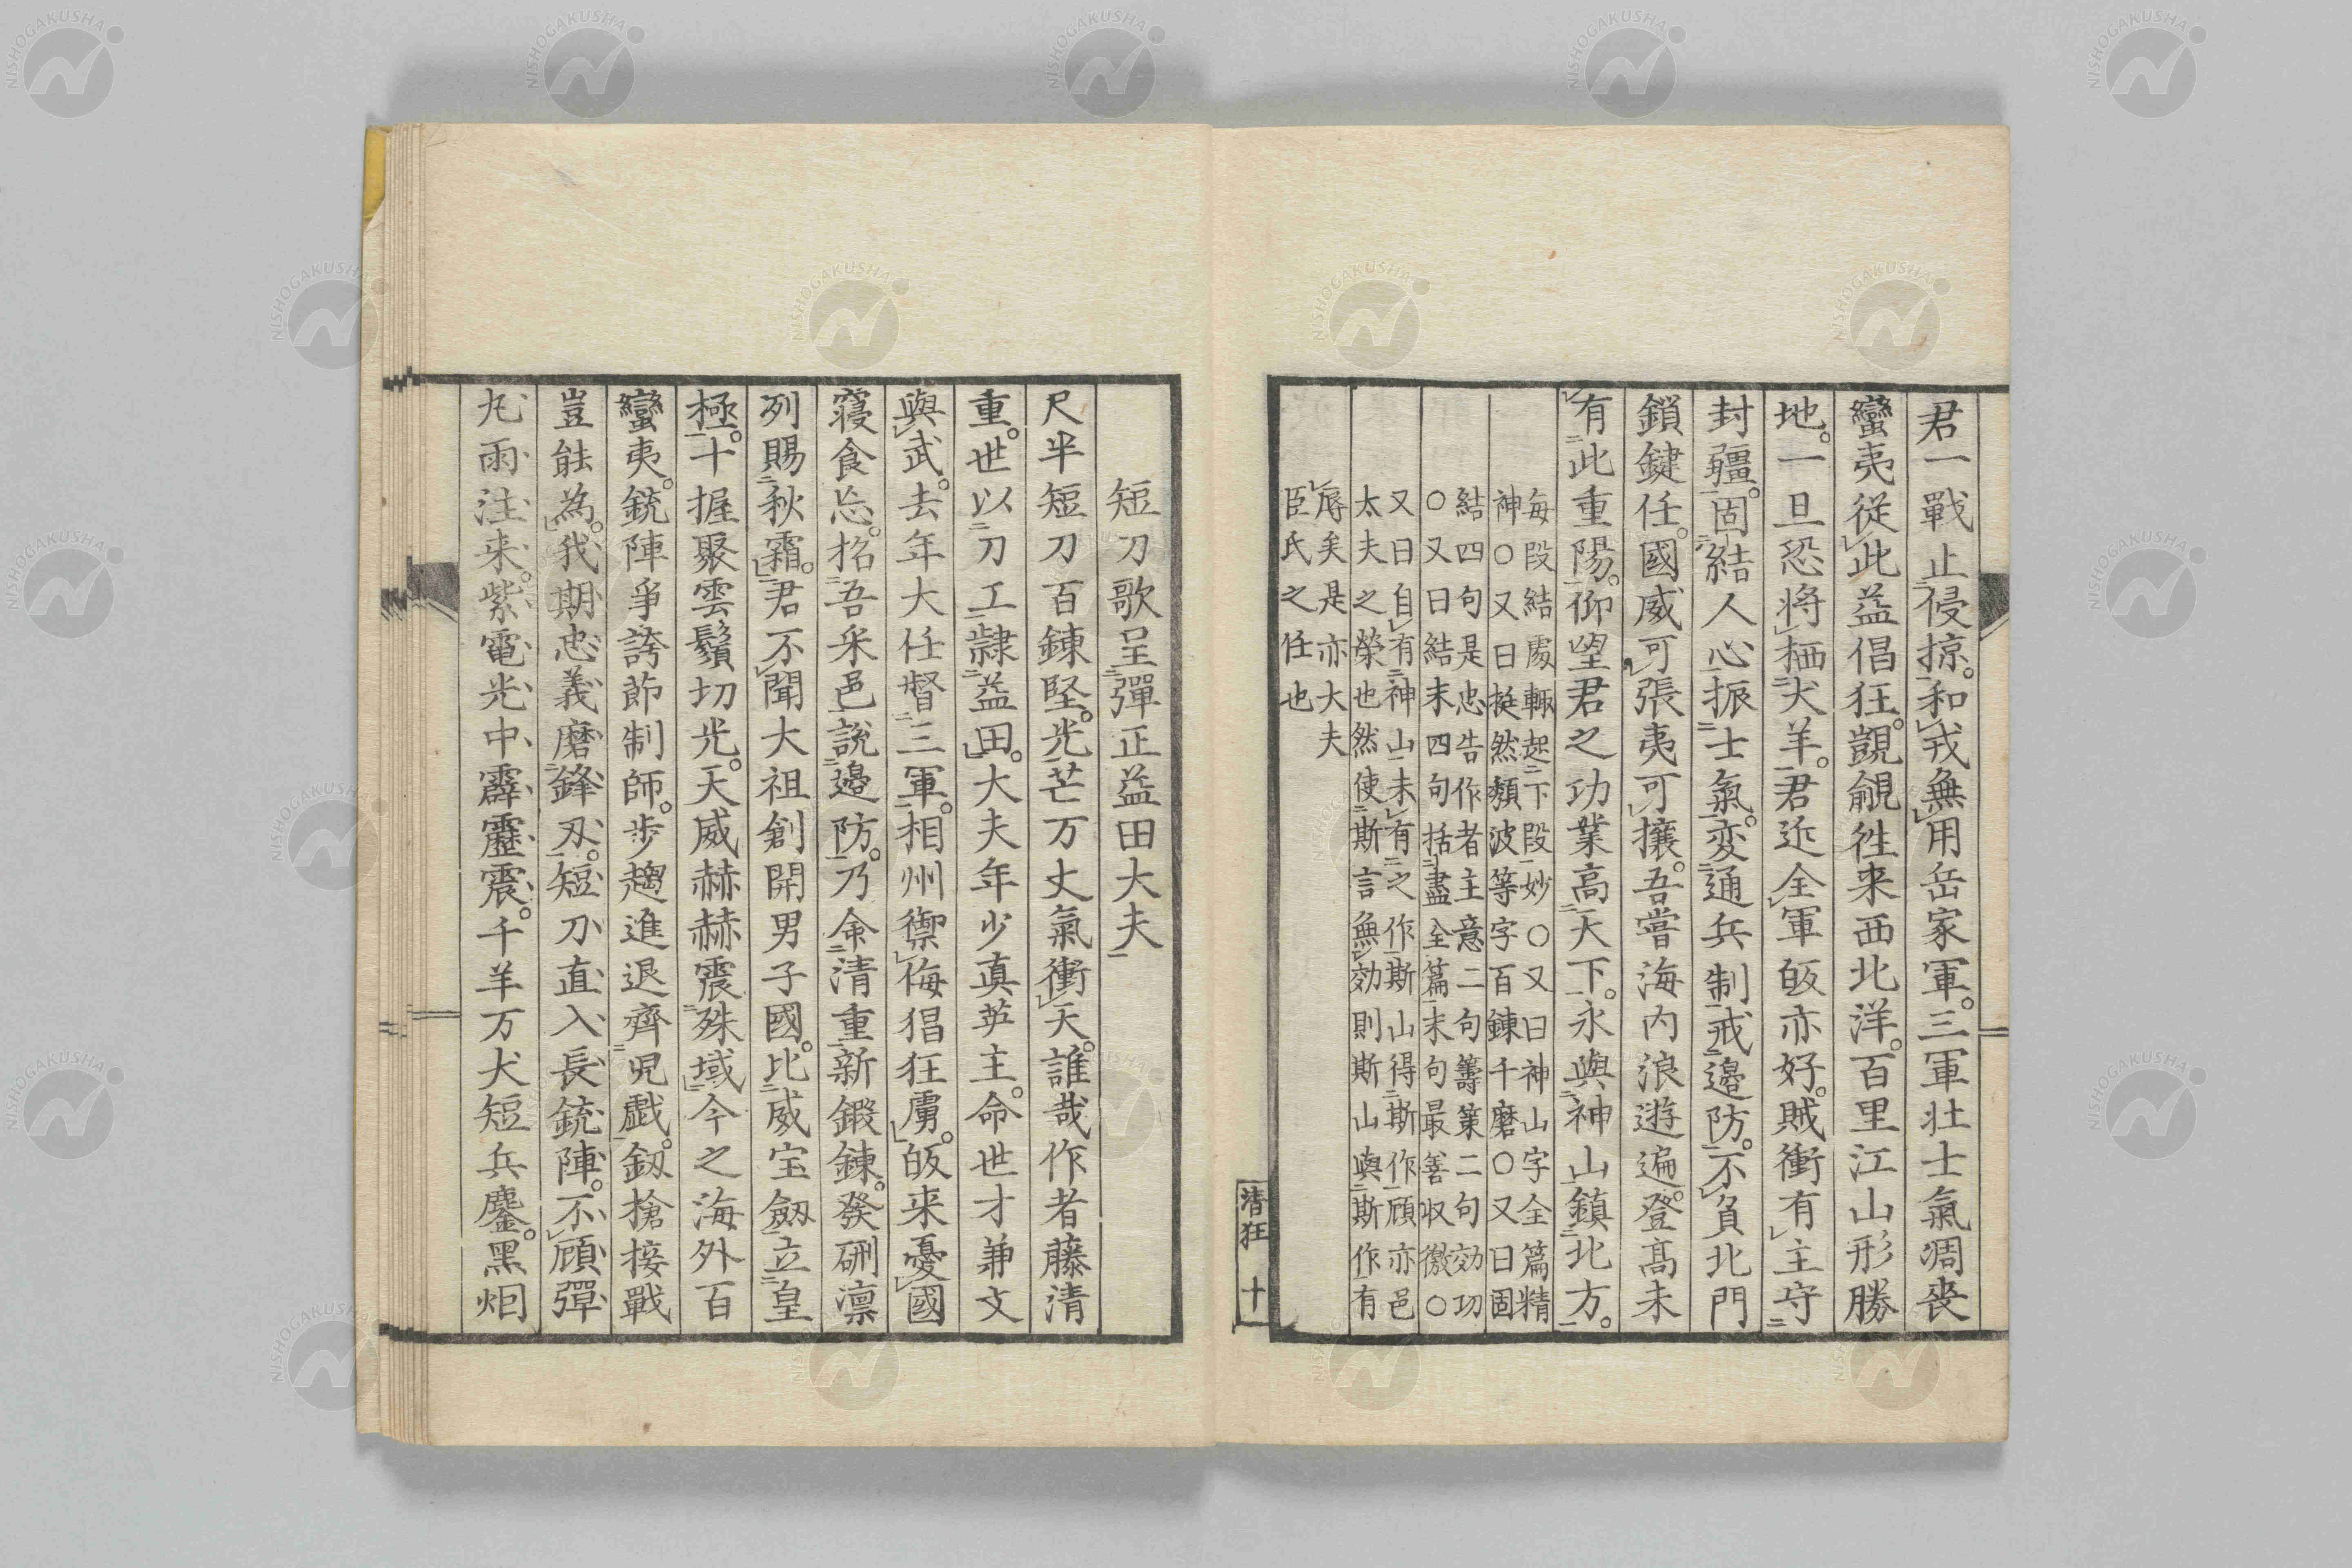 君一戰止侵掠。和戎無用岳家軍。三軍壮士氣凋喪
蠻夷從此益倡狂。覬覦徃来西北洋。百里江山形勝
地。一旦恐将栖犬羊。君近全軍皈亦好。賊衝有主守
封疆。固結人心振士氣。変通兵制戒邊防。不負北門
鎖鍵任。國威可張夷可攘。吾嘗海内浪遊遍。登髙未
有此重陽。仰望君之功業高天下。永與神山鎮北方。
每段結處輙起下段妙○又曰神山字全篇精
神○又曰挺然頽波等字百錬千磨○又曰固
結四句是忠告作者主意二句籌策二句効功
○又曰結末四句括盡全篇末句最善収徼○
又曰自有神山未有之作斯山得斯作頋亦邑
太夫之榮也然使斯言無効則斯山與斯作有
辱矣是亦大夫
臣氏之任也
清狂 十
短刀歌呈彈正益田大夫
尺半短刀百錬堅。光芒万丈氣衝天。誰哉作者藤清
重。世以刀工隷益田。大夫年少真英主。命世才兼文
與武。去年大任督三軍。相州禦侮猖狂虜。皈来憂國
寝食忘。招吾釆邑説邊防。乃命清重新鍛錬。發硎凛
冽賜秋霜。君不聞大祖創開男子國。比威宝劔立皇
極。十握聚雲鬚切光。天威赫赫震殊域。今之海外百
蠻夷。銃陣爭誇節制師。歩趨進退齊児戯。釼槍接戰
豈能為。我期忠義磨鋒刃。短刀直入長銃陣。不頋彈
丸雨注来。紫電光中霹靂震。千羊万犬短兵鏖。黑烟